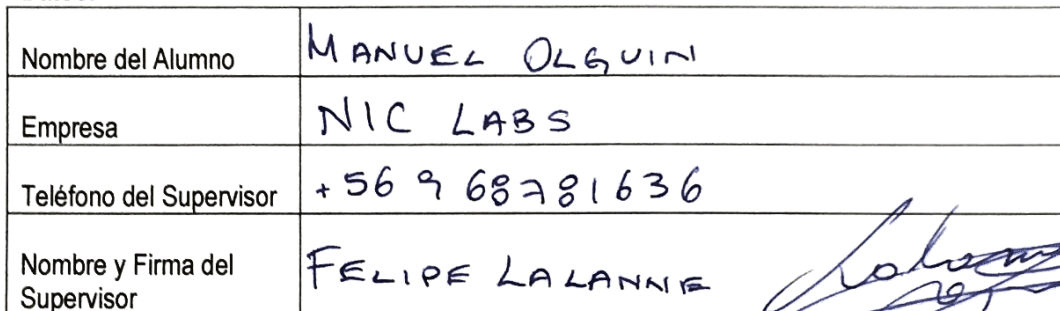 Nombre del Alumno MANUEL OLGUIN
Empresa NIC LABS
Teléfono del Supervisor +56 9 68781636
Nombre y Firma del Supervisor FELIPE LALANNE